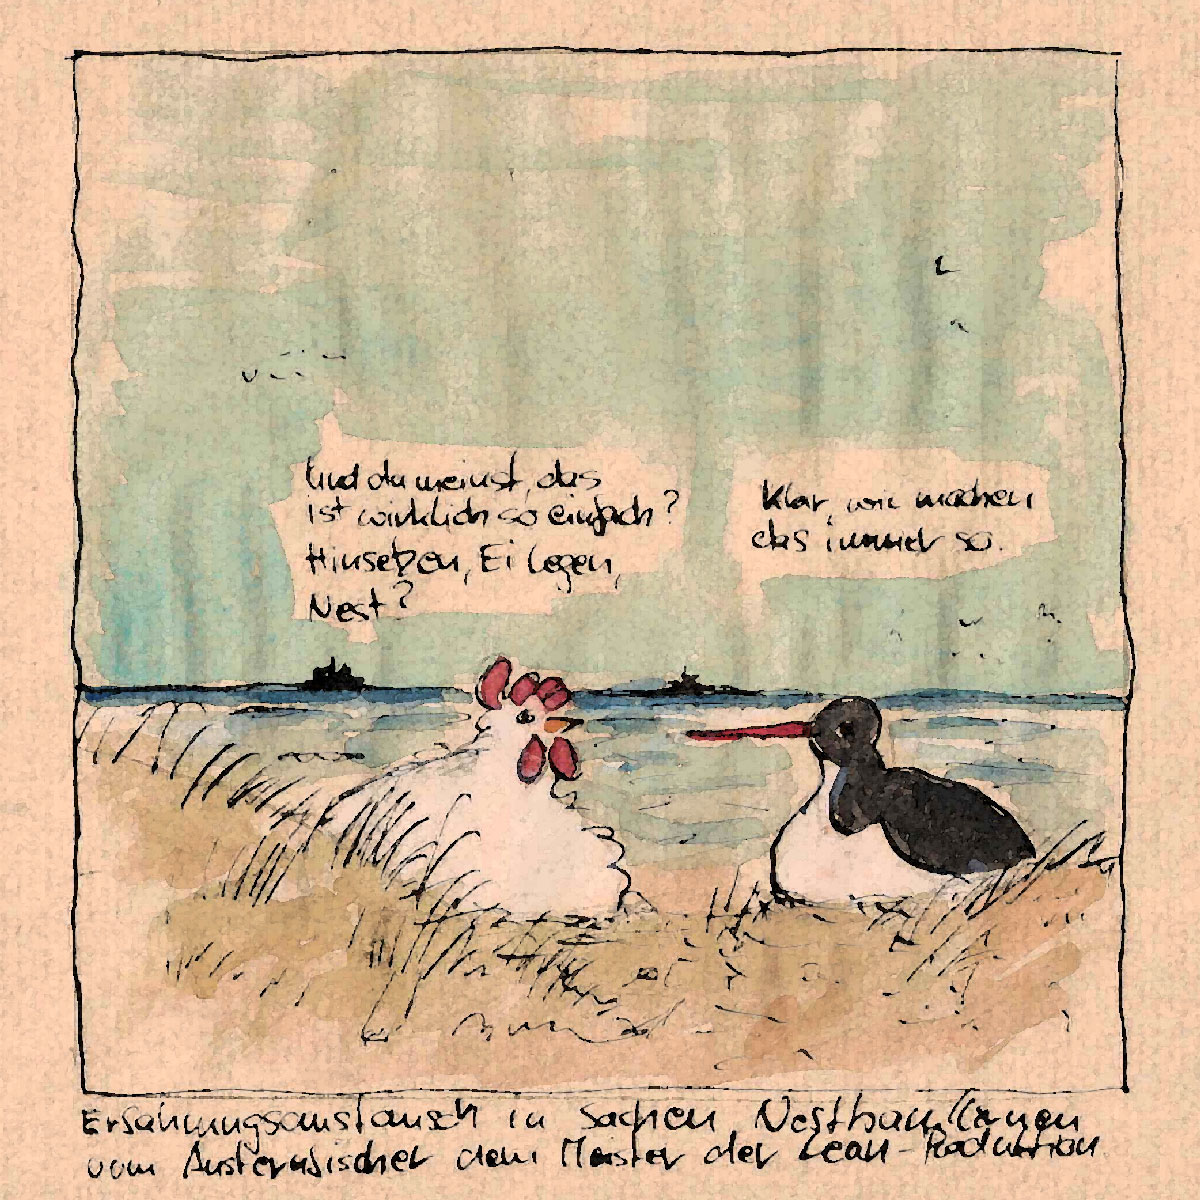 Und du meinst, das
ist wirklich so einfach?
Hinsetzen, Ei legen,
Nest?
Klar, wir machen
das immer so.
Erfahrungsaustausch in Sachen Nestbau. Lernen
vom Austernfischer dem Meister der Lean-Production